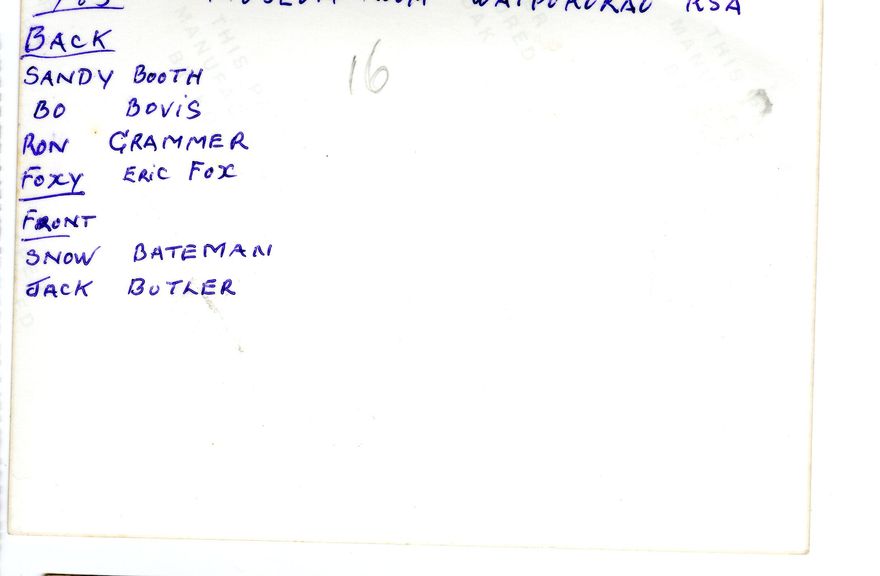 MUSEUM ROOM WAIPUKURAU RSA
BACK
SANDY BOOTH 16
BO BOVIS
RON GRAMMER
FOXY ERIC FOX
FRONT
SNOW BATEMAN
JACK BUTLER